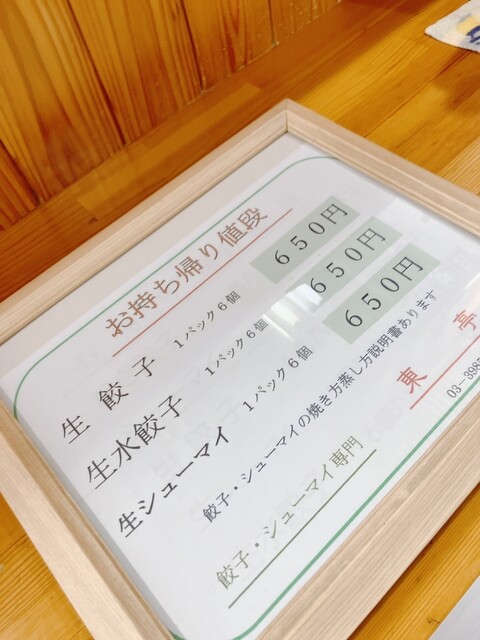 お持ち帰り値段
生 餃 子 1パック6個 650円
生水餃子 1パック6個 650円
生シューマイ 1パック6個 650円
餃子・シューマイの焼き方蒸し方説明書あります
餃子・シューマイ専門 東 亭
03-3985